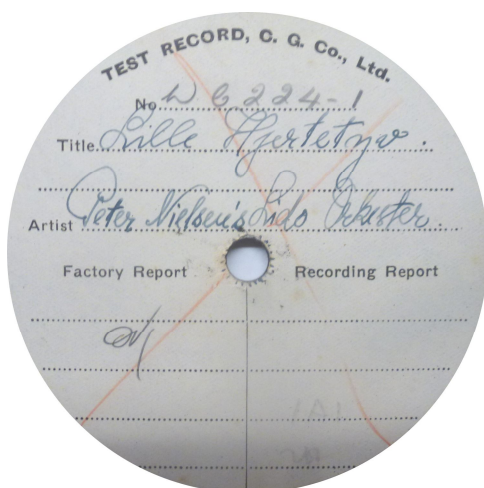 TEST RECORD, C. G. Co., Ltd.
No. W C 224-1
Title. Lille Hjertetyv.
Artist Peter Nielsen's Lido Orkester.
Factory Report Recording Report